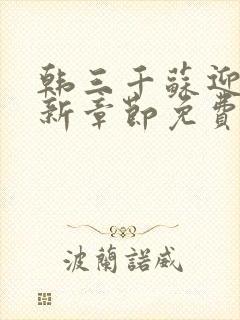 韩三千蘇迎
新章節免費
波蘭諾威